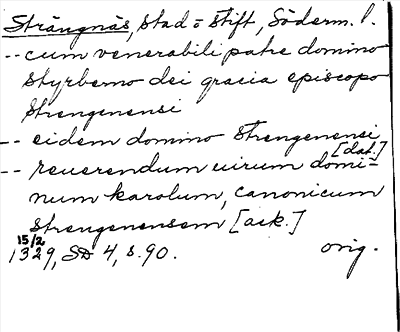 Strängnäs, stad o. stift, Söderm. l.
-- cum venerabili patre domino
styrberno dei gracia episcopo
strengenensi
-- eidem domino strengenensi
[dat.]
-- reuerendum uirum domi-
num karolum, canonicum
strengenensem [ack.]
15/2
1329, SD 4, s. 90. orig.